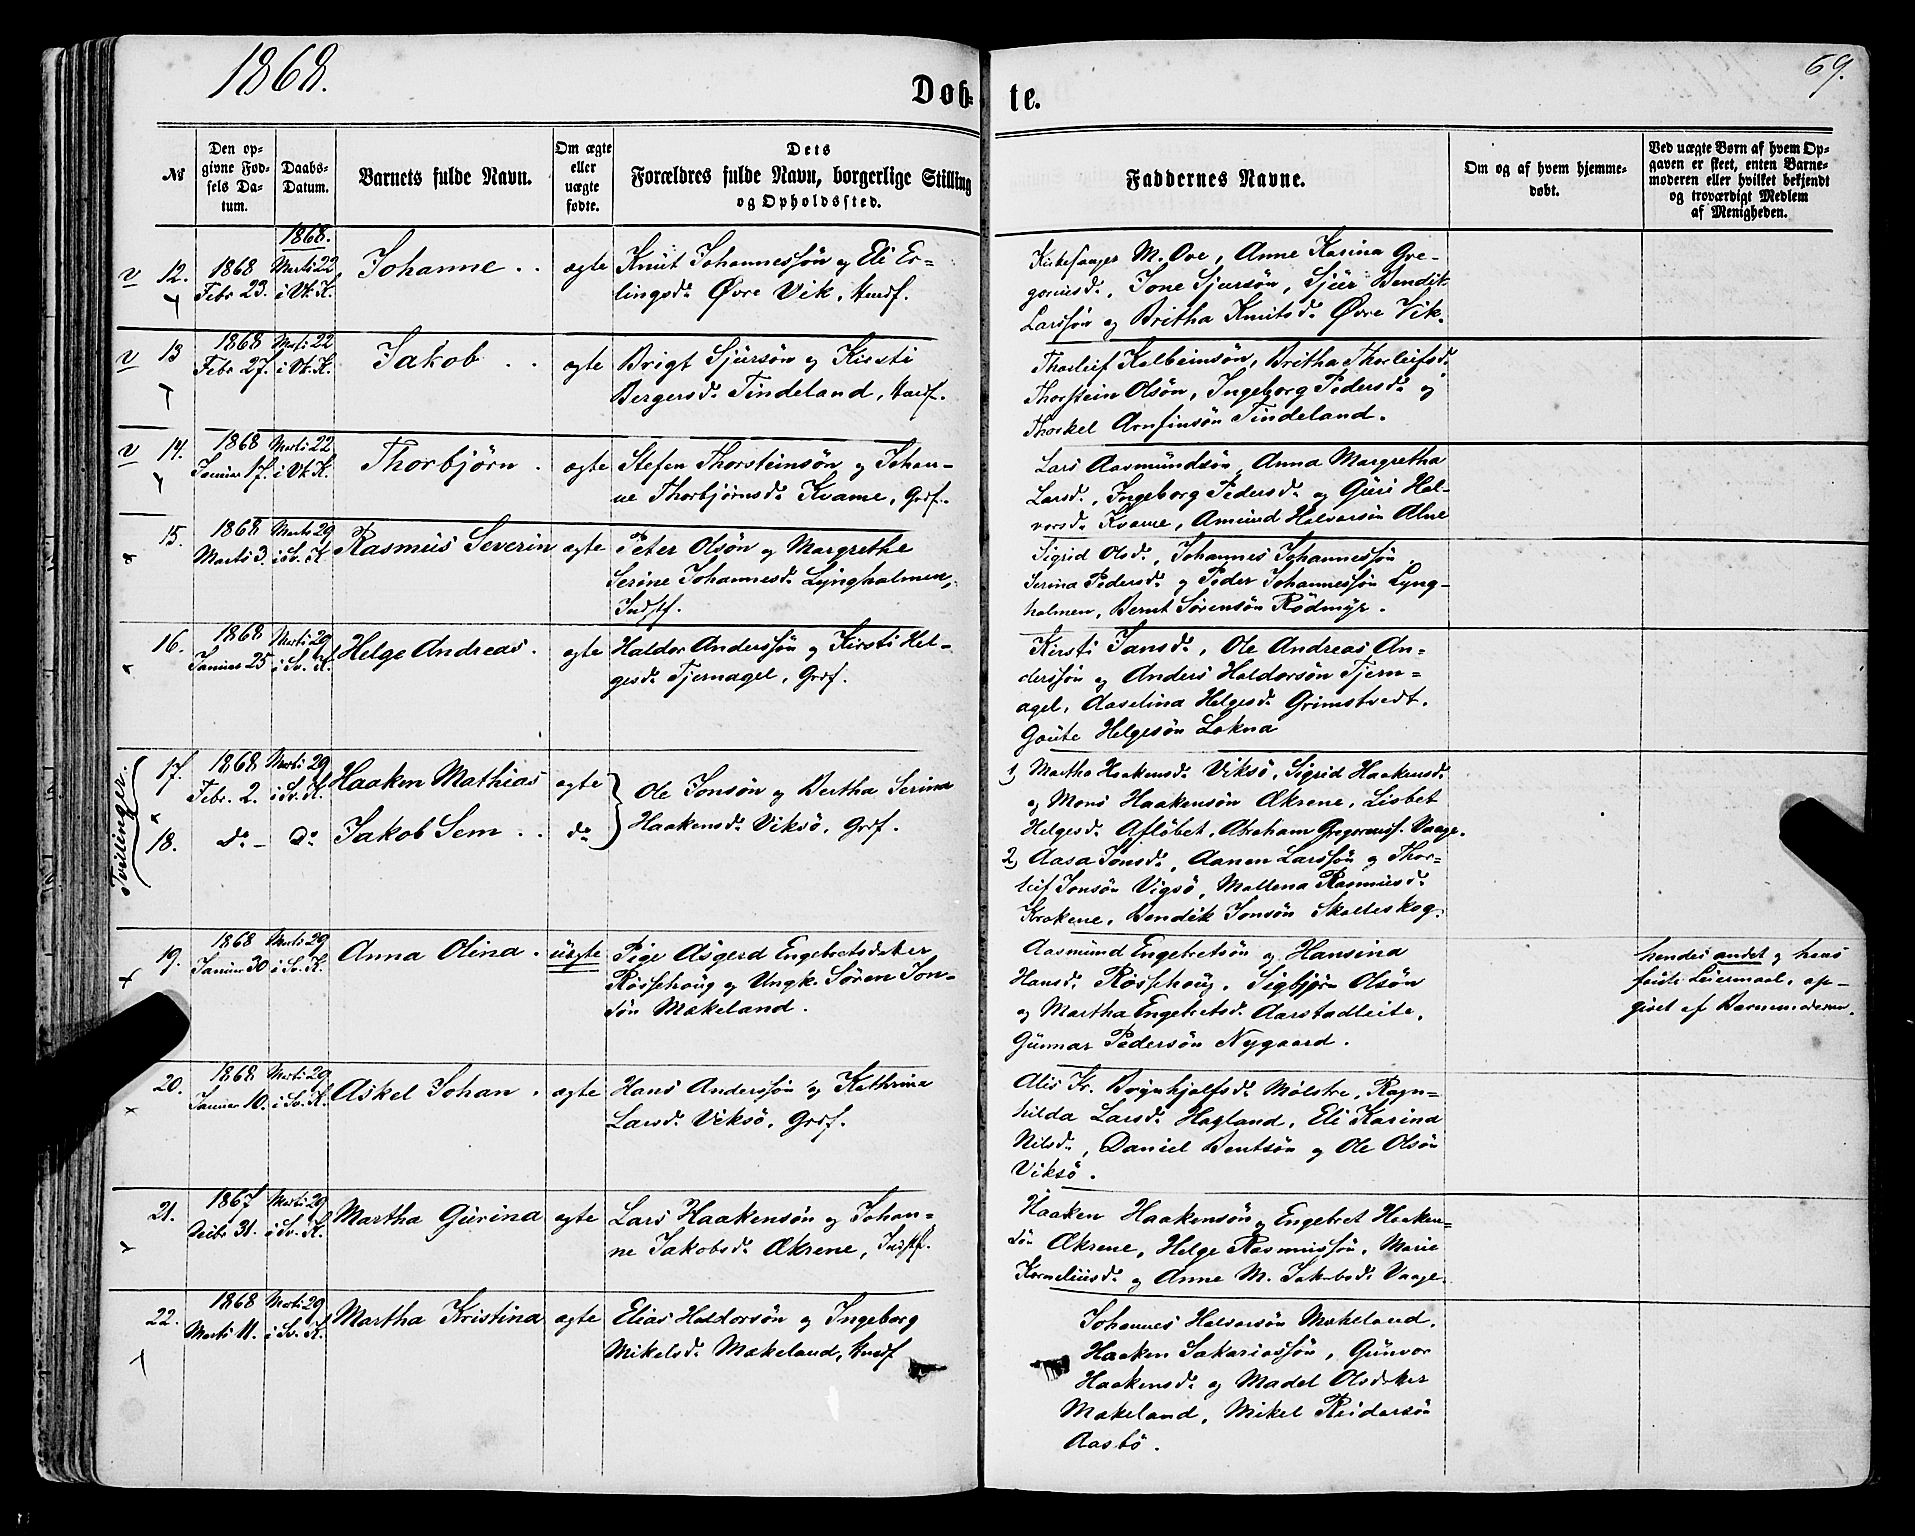 1868.
69.
Døb-te.
№
Den opgivne Fødsels Datum.
Daabs-Datum.
Barnets fulde Navn.
Om ægte eller uægte fødte.
Dets Forældres fulde Navn, borgerlige Stilling og Opholdssted.
Faddernes Navne.
Om og af hvem hjemmedøbt.
Ved uægte Børn af hvem Opgaven er skeet, enten Barnemoderen eller hvilket bekjendt og troværdigt Medlem af Menigheden.
1868.
v 12. 1868 Febr 23. Marti 22 i Vk. K. Johanne . . ægte
Knut Johannessøn og Eli Er-
lingsd. Øvre Vik, Husf.
Kirkesanger M. Ove, Anne Karina Gre-
goriusd., Jone Sjursøn, Sjur Bendik
Larssøn og Britha Knutsd. Øvre Vik.
v 13 1868 Febr 27. Marti 22 i Vk. K. Jakob . . ægte
Brigt Sjursøn og Kirsti
Bergersd. Tindeland, Husf.
Thorleif Kolbeinsøn, Britha Thorleifsd.
Thorstein Olsøn, Ingeborg Pedersd. og
Thorkel Arnfinsøn Tindeland.
v 14. 1868 Januar 17. Marti 22 i Vk. K. Thorbjørn . ægte
Stefen Thorsteinsøn og Johan-
ne Thorbjørnsd. Kvame, Grdf.
Lars Aasmundsøn, Anna Margretha
Larsd., Ingeborg Pedersd. og Guri Hal-
vorsd. Kvame, Amund Halvorsøn Alne
15. 1868 Marti 3. Marti 29 i Sv. K. Rasmus Severin ægte
Peter Olsøn og Margrethe
Serine Johannesd. Lyngholmen,
Indstf.
Sigrid Olsd., Johannes Johannessøn,
Serina Pedersd. og Peder Johannessøn Lyng-
holmen, Bernt Sørensøn Rødmyr.
16. 1868 Januar 25 Marti 29 i Sv. K. Helge Andreas . ægte
Haldor Anderssøn og Kirsti Hel-
gesd. Tjernagel, Grdf.
Kirsti Jansd., Ole Andreas An-
derssøn og Anders Haldorsøn Tjern-
agel, Aaselina Helgesd. Grimstvedt.
Goute Helgesøn Lokna
Tvillinger.
17. 1868 Febr. 2. Marti 29 i Sv. K. Haaken Mathias ægte
18. do - do Jakob Sem . . do
Ole Jonsøn og Bertha Serina
Haakensd. Viksø, Grdf.
1) Martha Haakensd. Viksø, Sigrid Haakensd.
og Mons Haakensøn Økrene, Lisbet
Helgesd. Afløbet, Abraham Gregoriusf. Vaage.
2) Aasa Jonsd., Aanen Larssøn og Thor-
leif Jonsøn Vigsø, Mallena Rasmusd.
Krakene, Bendik Jonsøn Skolleskog.
19. 1868 Januar 30 Marti 29 i Sv. K. Anna Olina . uægte
Pige Asgerd Engebretsdatter
Røssehoug og Ungk. Søren Jon-
søn Mækeland.
Aasmund Engebretsøn og Hansina
Hansd. Røssehoug, Sigbjørn Olsøn
og Martha Engebretsd. Aarstadleite,
Gunnar Pedersøn Nygaard.
hendes andet og hans
første Leiermaal, op-
givet af Barnemoderen.
20. 1868 Januar 10. Marti 29 i Sv. K. Askel Johan . ægte
Hans Anderssøn og Kathrina
Larsd. Viksø, Grdf.
Alis Kr. Brynhjolfsd. Mølstre, Ragn-
hilda Larsd. Hagland, Eli Karina
Nilsd., Daniel Bentsøn og Ole Olsøn
Viksø.
21. 1867 Decbr 31. Marti 29 i Sv. K. Martha Gurina ægte
Lars Haakensøn og Johan-
ne Jakobsd. Økrene, Indstf.
Haaken Haakensøn og Engebret Haaken-
søn Økrene, Helge Rasmussøn, Marie
Korneliusd. og Anne M. Jakobsd. Vaage.
22. 1868 Marti 11. Marti 29 i Sv. K. Martha Kristina ægte
Elias Haldorsøn og Ingeborg
Mikelsd. Mækeland, Husf
Johannes Halvorsøn Mækeland,
Haaken Sakariassøn, Gunvor
Haakensd. og Madel Olsdatter
Mækeland, Mikel Reidarsøn
Aasbø.